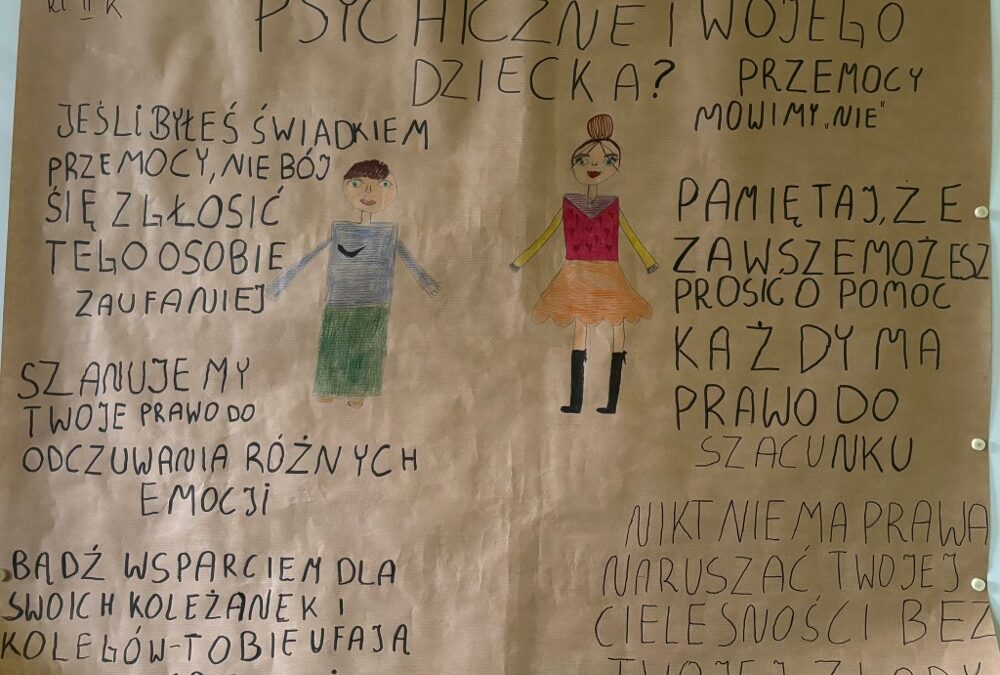 kl. II K
PSYCHICZNE TWOJEGO
DZIECKA?
PRZEMOCY
MOWIMY „NIE"
JEŚLI BYŁEŚ ŚWIADKIEM
PRZEMOCY, NIE BÓJ
SIĘ ZGŁOSIĆ
TEGO OSOBIE
ZAUFANIEJ
SZANUJEMY
TWOJE PRAWO DO
ODCZUWANIA RÓŻNYCH
EMOCJI
BĄDŹ WSPARCIEM DLA
SWOICH KOLEŻANEK I
KOLEGÓW-TOBIE UFAJĄ
PAMIĘTAJ, ŻE
ZAWSZE MOŻESZ
PROSIĆ O POMOC
KAŻDY MA
PRAWO DO
SZACUNKU
NIKT NIE MA PRAWA
NARUSZAĆ TWOJEJ
CIELESNOŚCI BEZ
TWOJEJ ZGODY